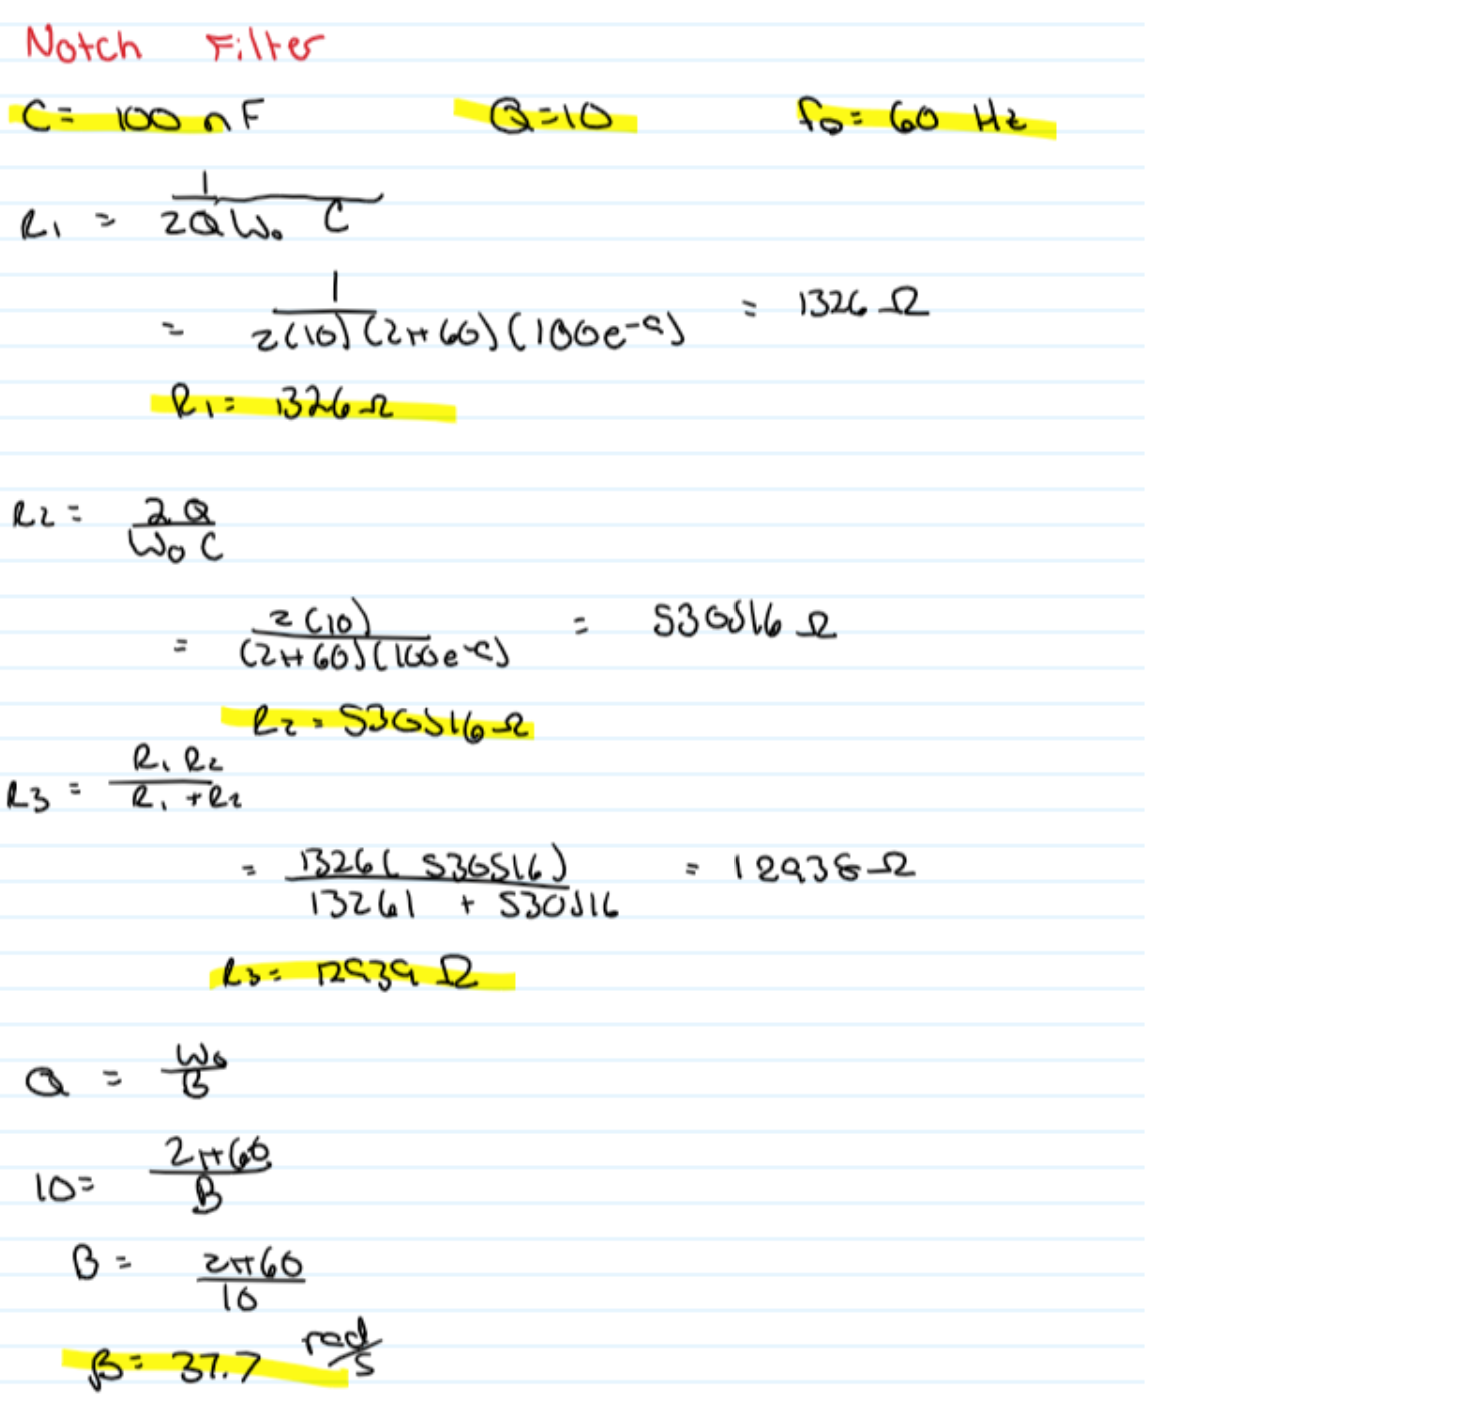 Notch Filter
C = 100 nF Q = 10 f₀ = 60 Hz
R₁ = 1 / 2QW₀ C
= 1 / 2(10)(2π60)(100e-9) = 1326 Ω
R₁ = 1326 Ω
R₂ = 2Q / W₀ C
= 2(10) / (2π60)(100e-9) = 530516 Ω
R₂ = 530516 Ω
R₃ = R₁ R₂ / R₁ + R₂
= 1326( 530516) / 13261 + 530516 = 12938 Ω
R₃ = 12939 Ω
Q = W₀ / B
10 = 2π60 / B
B = 2π60 / 10
β = 37.7 rad/s